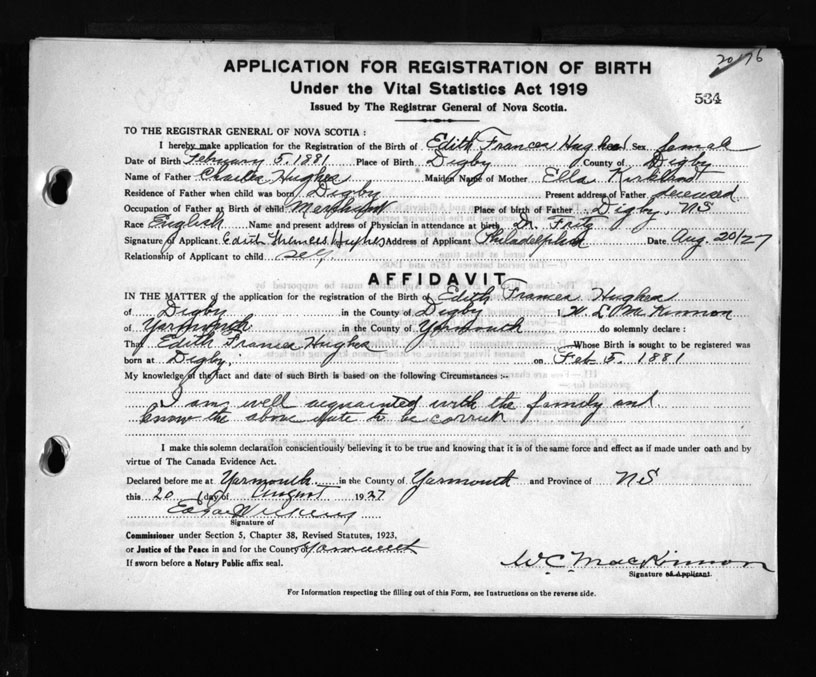 20176
APPLICATION FOR REGISTRATION OF BIRTH
Under the Vital Statistics Act 1919
534
Issued by The Registrar General of Nova Scotia.
TO THE REGISTRAR GENERAL OF NOVA SCOTIA:
I hereby make application for the Registration of the Birth of Edith Frances Hughes Sex female
Date of Birth February 5, 1881 Place of Birth Digby County of Digby
Name of Father Charles Hughes Maiden Name of Mother Ella
Residence of Father when child was born Digby Present address of Father deceased
Occupation of Father at Birth of child Merchant Place of birth of Father Digby, NS
Race English Name and present address of Physician in attendance at birth Dr. Fritz
Signature of Applicant Edith Frances Hughes Address of Applicant Philadelphia Date Aug. 20/27
Relationship of Applicant to child self
AFFIDAVIT
IN THE MATTER of the application for the registration of the Birth of Edith Frances Hughes
of Digby in the County of Digby I, McKinnon
of Yarmouth in the County of Yarmouth do solemnly declare:
That Edith Frances Hughes Whose Birth is sought to be registered was
born at Digby, on Feb 5, 1881
My knowledge of the fact and date of such Birth is based on the following Circumstances:-
I am well acquainted with the family and
know the above date to be correct
I make this solemn declaration conscientiously believing it to be true and knowing that it is of the same force and effect as if made under oath and by
virtue of The Canada Evidence Act.
Declared before me at Yarmouth in the County of Yarmouth and Province of NS
this 20 day of August 1927
Signature of
Commissioner under Section 5, Chapter 38, Revised Statutes, 1923,
or Justice of the Peace in and for the County of Yarmouth
If sworn before a Notary Public affix seal.
W.C. MacKinnon
Signature of Applicant.
For Information respecting the filling out of this Form, see Instructions on the reverse side.